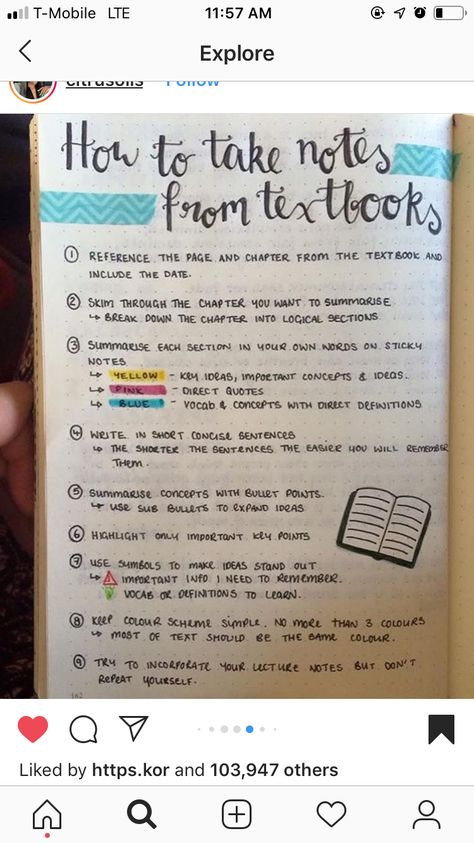 T-Mobile LTE 11:57 AM
Explore
citrusolis Follow
How to take notes
from textbooks
1 REFERENCE THE PAGE AND CHAPTER FROM THE TEXTBOOK AND
INCLUDE THE DATE.
2 SKIM THROUGH THE CHAPTER YOU WANT TO SUMMARISE
↳ BREAK DOWN THE CHAPTER INTO LOGICAL SECTIONS.
3 SUMMARISE EACH SECTION IN YOUR OWN WORDS ON STICKY
NOTES
↳ YELLOW - KEY IDEAS, IMPORTANT CONCEPTS & IDEAS.
↳ PINK - DIRECT QUOTES
↳ BLUE - VOCAB & CONCEPTS WITH DIRECT DEFINITIONS
4 WRITE IN SHORT CONCISE SENTENCES
↳ THE SHORTER THE SENTENCES THE EASIER YOU WILL REMEMBER
THEM.
5 SUMMARISE CONCEPTS WITH BULLET POINTS.
↳ USE SUB BULLETS TO EXPAND IDEAS
6 HIGHLIGHT ONLY IMPORTANT KEY POINTS
7 USE SYMBOLS TO MAKE IDEAS STAND OUT
↳ IMPORTANT INFO I NEED TO REMEMBER.
VOCAB OR DEFINITIONS TO LEARN.
8 KEEP COLOUR SCHEME SIMPLE. NO MORE THAN 3 COLOURS
↳ MOST OF TEXT SHOULD BE THE SAME COLOUR.
9 TRY TO INCORPORATE YOUR LECTURE NOTES BUT DON'T
REPEAT YOURSELF.
162
Liked by https.kor and 103,947 others